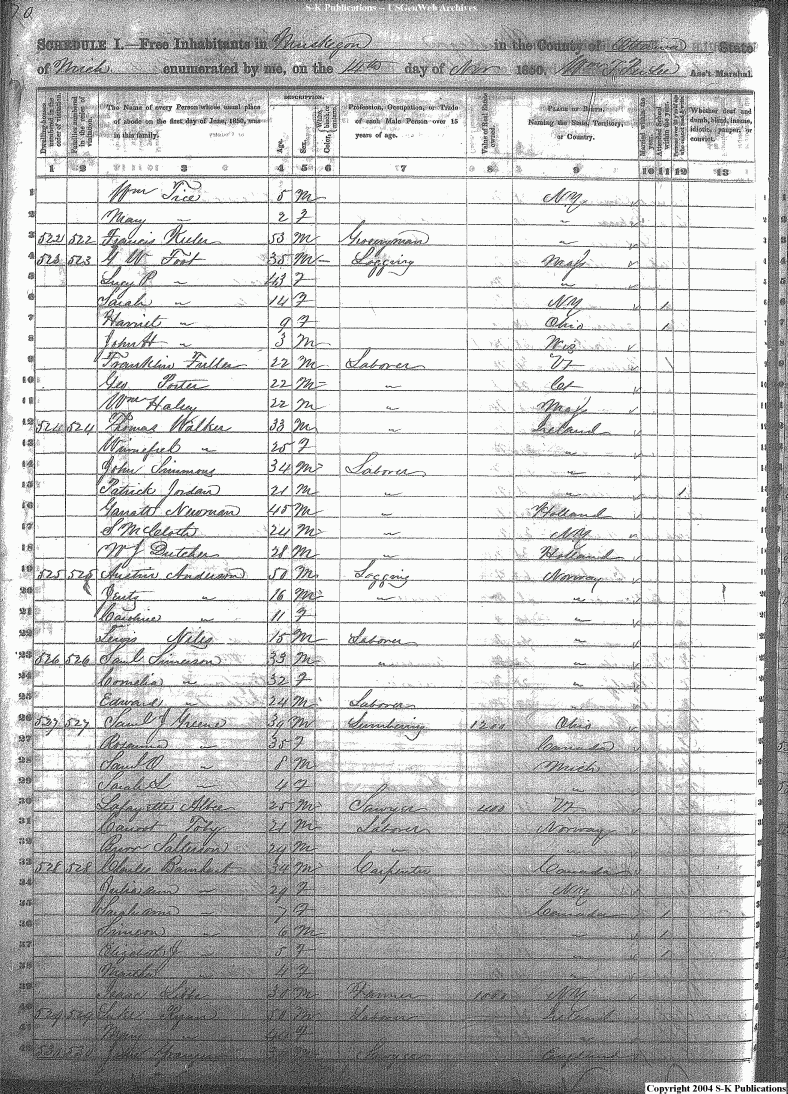 S-K Publications -- USGenWeb Archives
SCHEDULE I.—Free Inhabitants in Muskegon in the County of Ottawa State
of Mich enumerated by me, on the 14th day of Nov 1850. Ass't Marshal.
DESCRIPTION.
Dwelling-houses numbered in the order of visitation. Families numbered in the order of visitation. The Name of every Person whose usual place of abode on the first day of June, 1850, was in this family. Age. Sex. Color, Profession, Occupation, or Trade of each Male Person over 15 years of age. Value of Real Estate owned. PLACE OF BIRTH. Naming the State, Territory, or Country. Married within the year. Attended School within the year. Whether deaf and dumb, blind, insane, idiotic, pauper, or convict.
1 2 3 4 5 6 7 8 9 10 11 12 13
1 Wm Tice 5 M NY
2 Mary " 2 F "
3 522 522 Francis Keeler 53 M Groceryman "
4 523 523 G W Foot 35 M Logging Mass
5 Lucy P " 43 F "
6 Sarah " 14 F NY 1
7 Harriet " 9 F Ohio 1
8 John H " 3 M Wis
9 Franklin Fuller 22 M Laborer VT
10 Geo Porter 22 M " Ct
11 Wm Halsey 22 M " Mass
12 524 524 Thomas Walker 33 M " Ireland
13 Winnefred " 25 F "
14 John Simmons 34 M Laborer "
15 Patrick Jordan 21 M " " 1
16 Newman 45 M " Holland
17 S McCloth 24 M " NY
18 W J Dutcher 28 M " Holland
19 525 525 Anderson 50 M Logging Norway
20 " 16 M " "
21 Caroline " 11 F "
22 Lewis Niles 15 M Laborer "
23 526 526 Saml Simerson 33 M " "
24 Cornelia " 32 F "
25 Edward " 24 M Laborer "
26 527 527 Saml J Greene 30 M Lumbering 1200 Ohio
27 Rosanna " 35 F Canada
28 Saml O " 8 M Mich
29 Sarah L " 4 F "
30 Lafayette 25 M Sawyer 400 VT
31 Toby 21 M Laborer Norway
32 24 M " "
33 528 528 Charles Barnhart 34 M Carpenter Canada
34 Julia ann " 29 F NY
35 Sarah ann " 7 F Canada 1
36 Simeon " 6 M " 1
37 Elizabeth J " 5 F " 1
38 Martha " 4 F "
39 Isaac 30 M Farmer 1000 NY
40 529 529 Luke Ryan 50 M Laborer Ireland
41 Mary " 40 F "
42 530 530 John M Sawyer England
Copyright 2004 S-K Publications